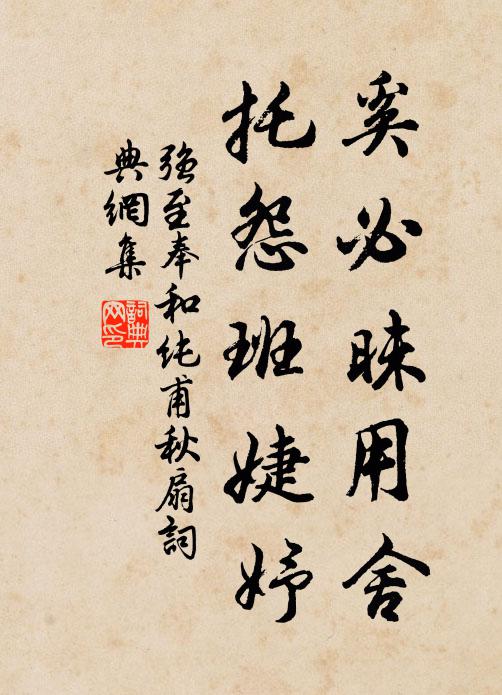 奚必昧用舍
托怨班婕妤
强至奉和纯甫秋扇詞
典網集
詞典網印